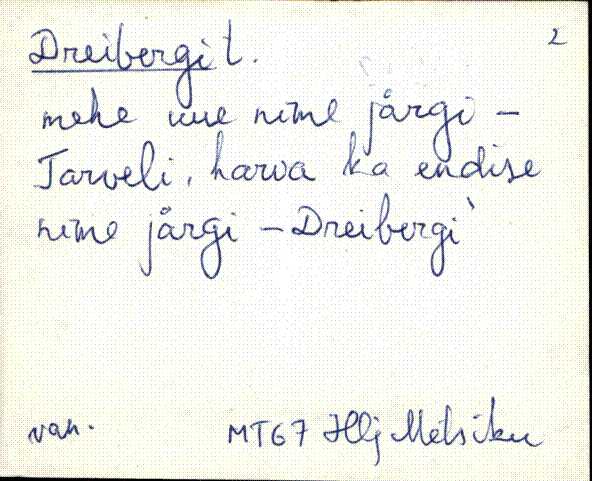 Dreibergi t. 2
mehe uue nime järgi –
Tarveli, harva ka endise
nime järgi – Dreibergi`
van. MT67 Hlj Metsiku